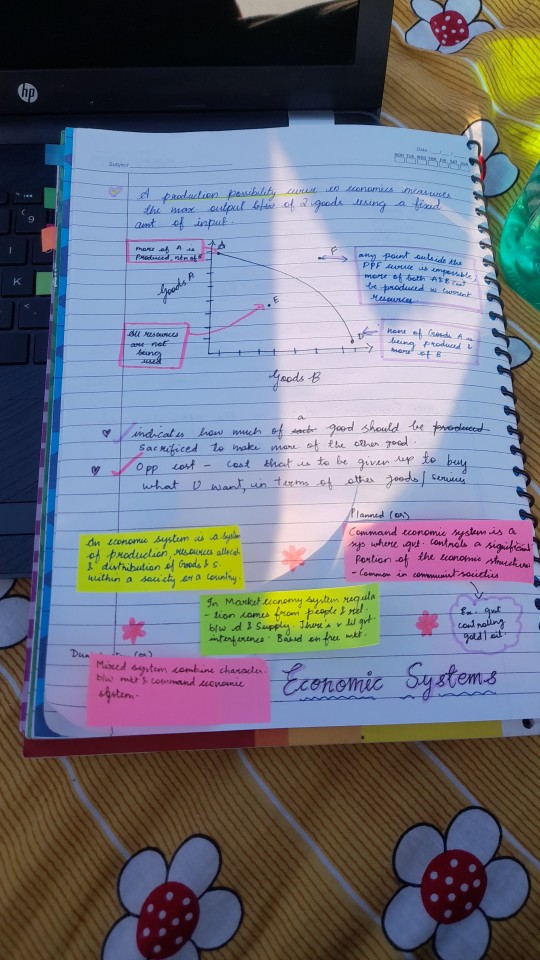 hp
9
Subject
Date
MON TUE WED THU FRI SAT SUN
A production possibility curve in economics measures
the max output b/w of 2 goods using a fixed
amt of input.
more of A is
Produced, non of B
A
F
any point outside the
PPF curve is impossible
more of both A & B can't
be produced w current
resources
Goods A
E
All resources
are not
being
used
none of Goods A is
being produced &
more of B
Goods B
a
indicates how much of good should be produced
sacrificed to make more of the other good.
Opp cost - cost that is to be given up to buy
what U want, in terms of other goods/ servies
Planned (or)
An economic system is a system
of production, resources allocat
& distribution of Goods & S.
within a society or a country.
Command economic system is a
sys where gvt. controls a significant
Portion of the economic structure
- Common in communist societies
In Market economy system regula
- tion comes from people & rel.
b/w d & Supply. There's v lil gvt.
interference. Based on free mkt.
Ex. gvt
controlling
gold/oil.
(or)
Mixed system combine character.
b/w mkt & command economic
system.
Economic Systems